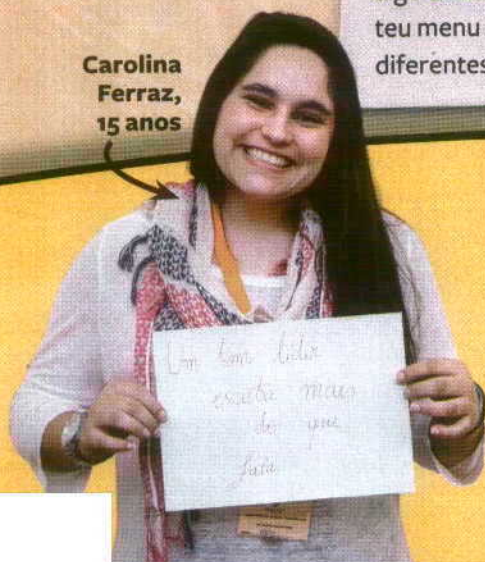 teu menu
diferentes
Carolina
Ferraz,
15 anos
Um bom líder
escuta mais
do que
fala